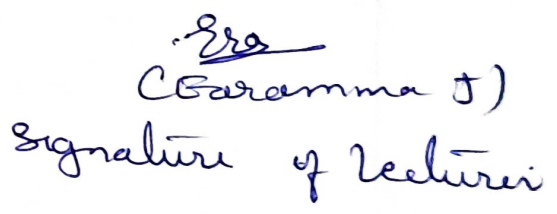 Era
(Earamma J)
Signature of Lecturer